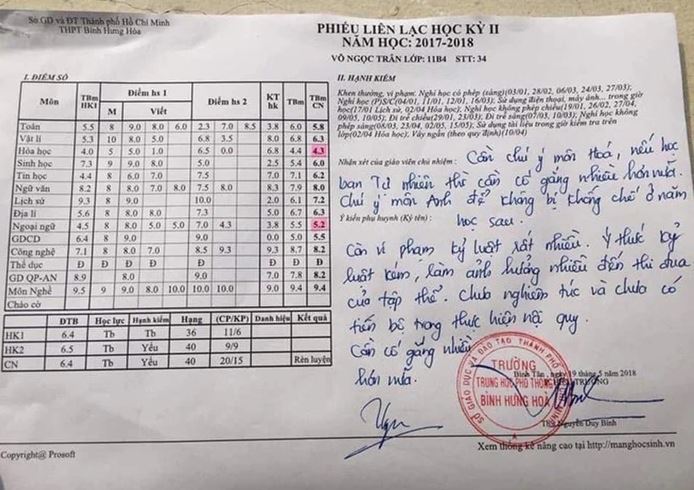 Sở GD và ĐT Thành phố Hồ Chí Minh
THPT Bình Hưng Hòa
PHIẾU LIÊN LẠC HỌC KỲ II
NĂM HỌC: 2017-2018
VÕ NGỌC TRÂN LỚP: 11B4 STT: 34
I. ĐIỂM SỐ
Môn TBm HK1 Điểm hs 1 Điểm hs 2 KT hk TBm TBm CN
M Viết
Toán 5.5 8 9.0 8.0 6.0 2.3 7.0 8.5 3.8 6.0 5.8
Vật lí 5.3 10 8.0 5.0 6.8 3.5 8.0 6.8 6.3
Hóa học 4.0 5 5.0 1.0 6.5 0.0 6.8 4.4 4.3
Sinh học 7.3 9 9.0 8.0 5.0 2.5 5.4 6.0
Tin học 4.4 8 6.0 7.5 7.0 7.1 6.2
Ngữ văn 8.2 8 8.0 7.0 8.0 7.5 8.0 8.3 7.9 8.0
Lịch sử 9.3 8 9.0 10.0 2.0 6.1 7.2
Địa lí 5.6 8 8.0 8.0 7.3 5.0 6.7 6.3
Ngoại ngữ 4.5 8 8.0 5.0 5.0 7.0 4.3 3.8 5.5 5.2
GDCD 6.4 8 9.0 9.0 0.0 5.0 5.5
Công nghệ 7.1 8 8.0 7.0 8.5 9.3 9.3 8.7 8.2
Thể dục Đ Đ Đ Đ Đ Đ Đ
GD QP-AN 8.9 8.0 9.0 7.0 7.8 8.2
Môn Nghề 9.5 9 9.0 8.0 10.0 10.0 10.0 9.0 9.4 9.4
Chào cờ
ĐTB Học lực Hạnh kiểm Hạng (CP/KP) Danh hiệu Kết quả
HK1 6.4 Tb Tb 36 11/6
HK2 6.5 Tb Yếu 40 9/9
CN 6.4 Tb Yếu 40 20/15 Rèn luyện
Copyright@ Prosoft
II. HẠNH KIỂM
Khen thưởng, vi phạm: Nghỉ học có phép (sáng)(03/01, 28/02, 06/03, 24/03, 27/03);
Nghỉ học (P)S/C(04/01, 11/01, 12/01, 16/03); Sử dụng điện thoại, máy ảnh... trong giờ
học(17/01 Lịch sử, 02/04 Hóa học); Nghỉ học không phép chiều(19/01, 26/02, 27/04,
09/05, 10/05); Đi trễ chiều(29/01, 23/03); Đi trễ sáng(07/03, 10/03); Nghỉ học không
phép sáng(08/03, 23/04, 02/05, 15/05); Sử dụng tài liệu trong giờ kiểm tra trên
lớp(02/04 Hóa học); Váy ngắn (theo quy định)(10/04)
Nhận xét của giáo viên chủ nhiệm: Cần chú ý môn Hoá, nếu học
ban Tự nhiên thì cần cố gắng nhiều hơn nữa.
Chú ý môn Anh để không bị khống chế ở năm
Ý kiến phụ huynh (Ký tên): học sau.
Còn vi phạm kỷ luật rất nhiều. Ý thức kỷ
luật kém, làm ảnh hưởng nhiều đến thi đua
của tập thể. Chưa nghiêm túc và chưa có
tiến bộ trong thực hiện nội quy.
Cần cố gắng nhiều
hơn nữa.
Bình Tân, ngày 19 tháng 5 năm 2018
SỞ GIÁO DỤC VÀ ĐÀO TẠO THÀNH PHỐ
TRƯỜNG
TRUNG HỌC PHỔ THÔNG
BÌNH HƯNG HOÀ
Nguyễn Duy Bình
Xem thống kê nâng cao tại http://manghocsinh.vn